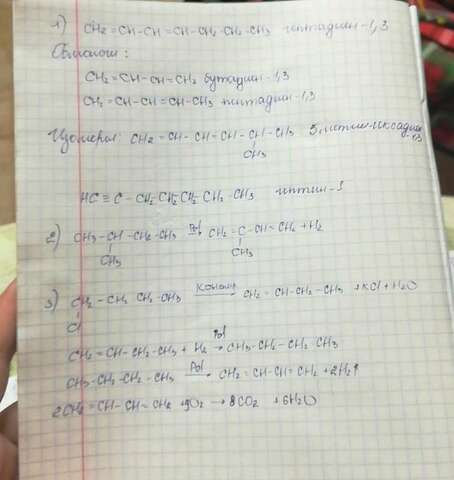 1) CH2=CH-CH=CH-CH2-CH2-CH3 гептадиен-1,3
Гомологи:
CH2=CH-CH=CH2 бутадиен-1,3
CH2=CH-CH=CH-CH3 пентадиен-1,3
Изомеры: CH2=CH-CH=CH-CH-CH3 5метил-гексадиен 1,3
CH3
HC≡C-CH2-CH2-CH2-CH2-CH3 гептин-1
2) CH3-CH-CH2-CH3 → CH2=C-CH=CH2+H2
CH3 CH3
3) CH2-CH2-CH2-CH3 → CH2=CH-CH2-CH3 +KCl+H2O
Cl
CH2=CH-CH2-CH3+H2 → CH3-CH2-CH2-CH3
CH3-CH2-CH2-CH3 → CH2=CH-CH=CH2+2H2↑
2CH2=CH-CH=CH2 +9O2 → 8CO2 +6H2O